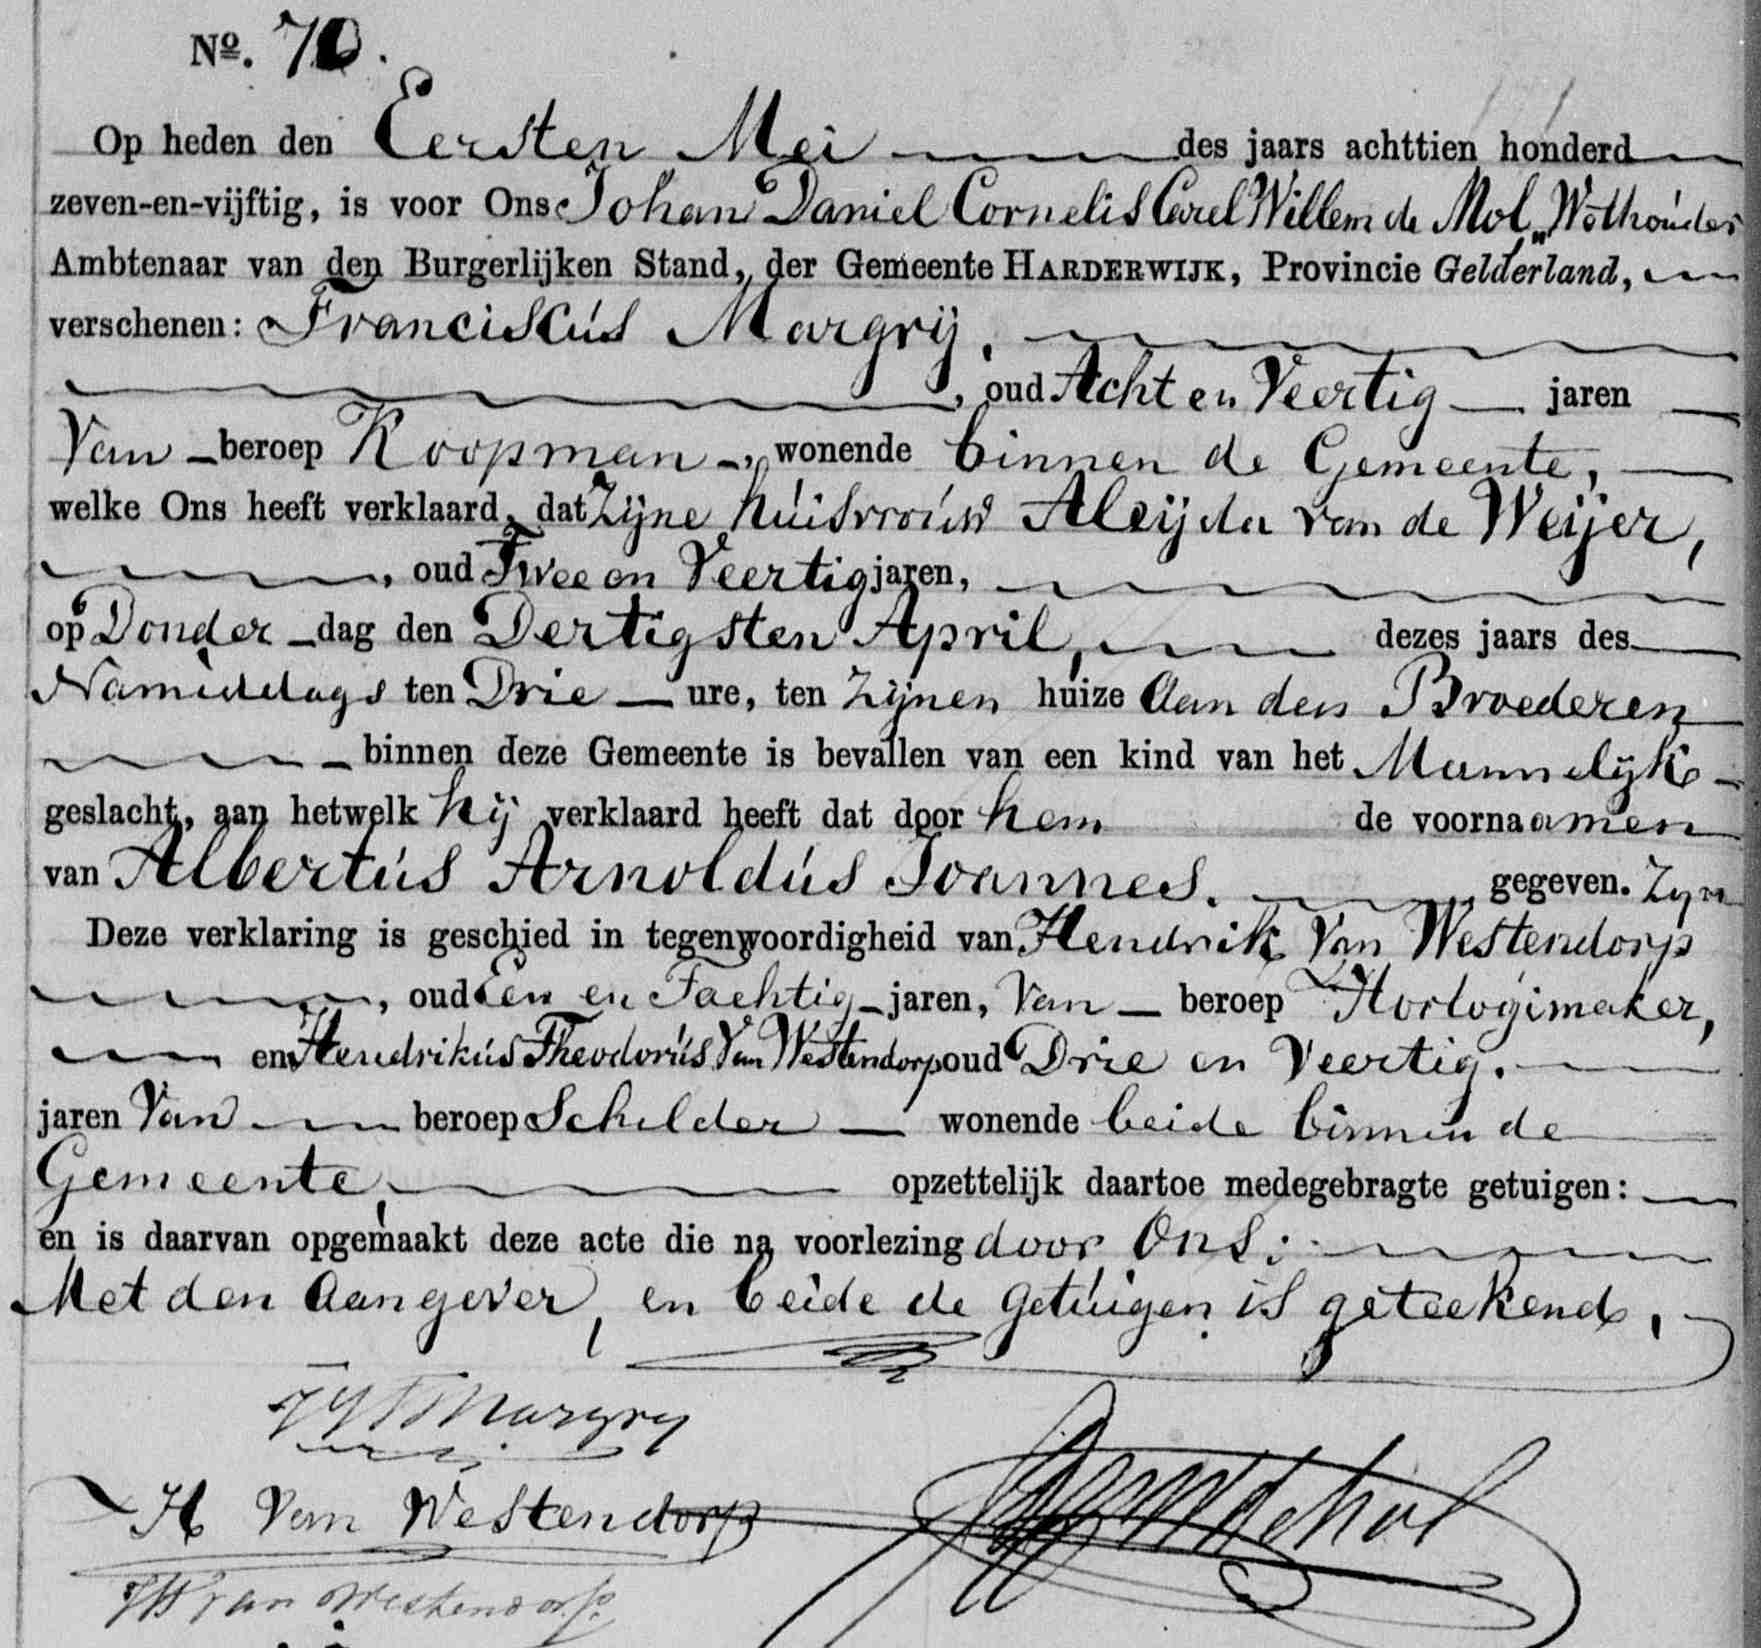 Nº. 70.
Op heden den Eersten Mei des jaars achttien honderd
zeven-en-vijftig, is voor Ons Johan Daniel Cornelis Carel Willem de Mol, Wethouder
Ambtenaar van den Burgerlijken Stand, der Gemeente HARDERWIJK, Provincie Gelderland,
verschenen: Franciscus Margrij,
, oud Acht en Veertig jaren
Van beroep Koopman, wonende binnen de Gemeente,
welke Ons heeft verklaard, dat Zijne huisvrouw Aleijda van de Weijer,
, oud Twee en Veertig jaren,
op Donder dag den Dertigsten April, dezes jaars des
Namiddags ten Drie ure, ten Zijnen huize Aan den Broederen
binnen deze Gemeente is bevallen van een kind van het Mannelijk
geslacht, aan hetwelk hij verklaard heeft dat door hem de voornaamen
van Albertus Arnoldus Joannes. gegeven. Zyn
Deze verklaring is geschied in tegenwoordigheid van Hendrik Van Westendorp
, oud Een en Tachtig jaren, Van beroep Horlogimaker,
en Hendrikus Theodorus Van Westendorp oud Drie en Veertig.
jaren Van beroep Schilder wonende beide binnen de
Gemeente, opzettelijk daartoe medegebragte getuigen:
en is daarvan opgemaakt deze acte die na voorlezing door Ons:
Met den Aangever, en beide de getuigen is geteekend,
Margry
H Van Westendorp
van Westendorp
de Mol